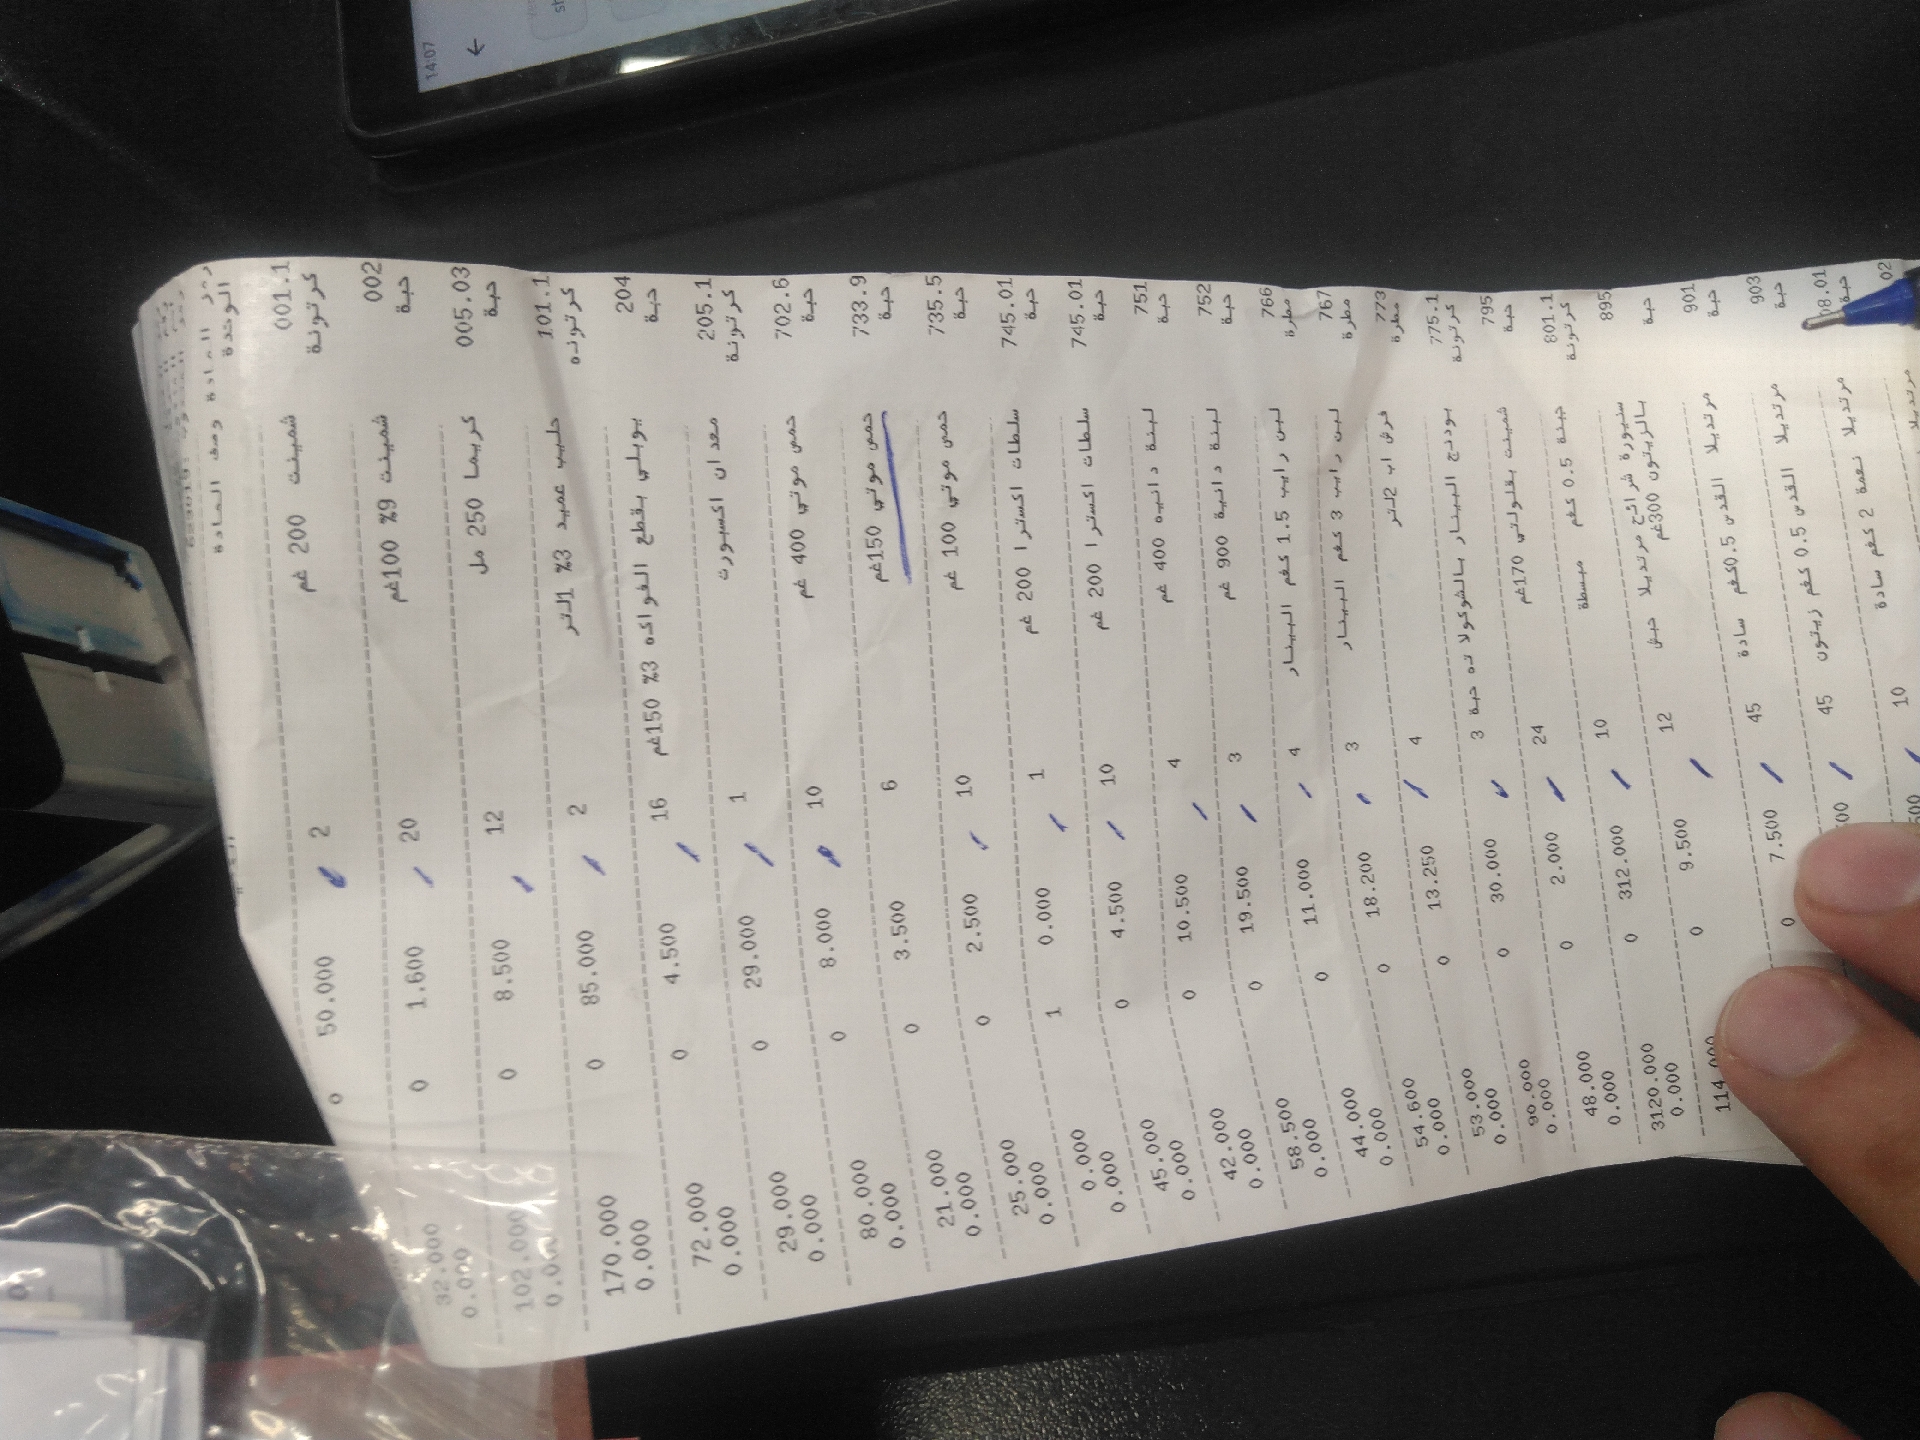 14:07
رمز المادة وصف المادة
الوحدة
001.1 شمينت 200 غم
كرتونة 2 50.000 0
002 شمينت 9% 100غم
حبة 20 1.600 0 32.000
0.000
005.03 كريما 250 مل
حبة 12 8.500 0 102.000
0.000
101.1 حليب عميد 3% 1لتر
كرتونه 2 85.000 0 170.000
0.000
204 يوبلي بقطع الفواكه 3% 150غم
حبة 16 4.500 0 72.000
0.000
205.1 معدان اكسبورت
كرتونة 1 29.000 0 29.000
0.000
702.6 حمص موتي 400 غم
حبة 10 8.000 0 80.000
0.000
733.9 حمص موتي 150غم
حبة 6 3.500 0 21.000
0.000
735.5 حمص موتي 100 غم
حبة 10 2.500 0 25.000
0.000
745.01 سلطات اكسترا 200 غم
حبة 1 0.000 1 0.000
0.000
745.01 سلطات اكسترا 200 غم
حبة 10 4.500 0 45.000
0.000
751 لبنة دانيه 400 غم
حبة 4 10.500 0 42.000
0.000
752 لبنة دانية 900 غم
حبة 3 19.500 0 58.500
0.000
766 لبن رايب 1.5 كغم البينار
مطرة 4 11.000 0 44.000
0.000
767 لبن رايب 3 كغم البينار
مطرة 3 18.200 0 54.600
0.000
773 فرش اب 2لتر
مطرة 4 13.250 0 53.000
0.000
775.1 بودنج البينار بالشوكولا ته حبة
كرتونة 3 30.000 0 90.000
0.000
795 شمينت بقلولتي 170غم
حبة 24 2.000 0 48.000
0.000
801.1 جبنة 0.5 كغم مبسطة
كرتونة 10 312.000 0 3120.000
0.000
895 سنيورة شرائح مرتديلا حبش
بالزيتون 300غم
حبة 12 9.500 0
901 مرتديلا القدس 0.5كغم سادة
حبة 45 7.500 0
903 مرتديلا القدس 0.5 كغم زيتون
حبة 45
08.01 مرتديلا نعمة 2 كغم سادة
حبة 10
02 مرتديلا